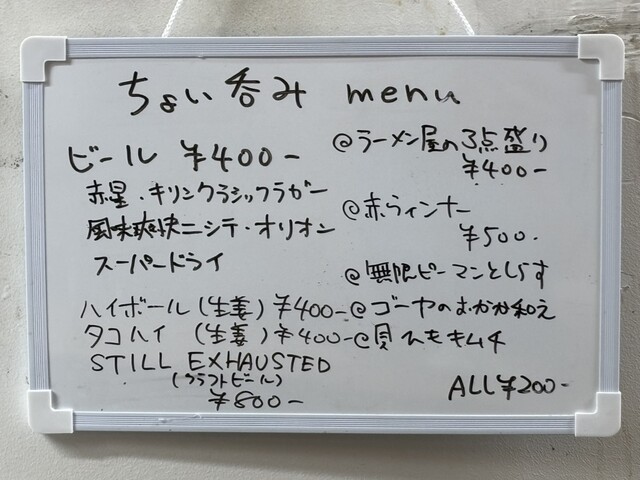 ちょい呑み menu
ビール ¥400-
赤星・キリンクラシックラガー
風味爽快ニシテ・オリオン
スーパードライ
ハイボール(生姜)¥400-
タコハイ(生姜)¥400-
STILL EXHAUSTED
(クラフトビール)
¥800-
@ラーメン屋の3点盛り
¥400-
@赤ウィンナー
¥500-
@無限ピーマンとしらす
@ゴーヤのおかか和え
@貝ひもキムチ
ALL¥200-